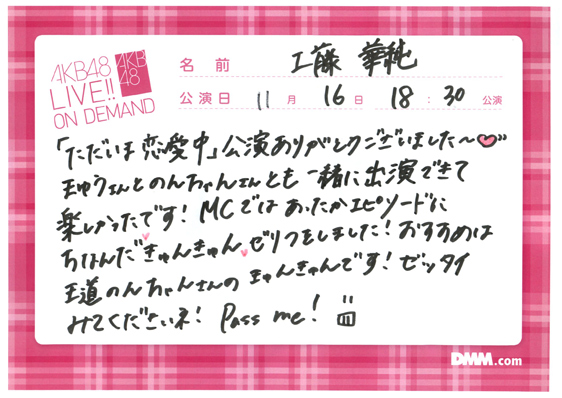 AKB48
LIVE!!
ON DEMAND
AKB
48
名前 工藤 華純
公演日 11月 16日 18:30 公演
「ただいま恋愛中」公演ありがとうございました〜
まゆうさんとのんちゃんさんとも一緒に出演できて
楽しかったです! MCではあったかエピソードに
ちなんだきゅんきゅんゼリフをしました! おすすめは
王道のんちゃんさんのきゅんきゅんです! ゼッタイ
みてくださいネ! Pass me!
DMM.com